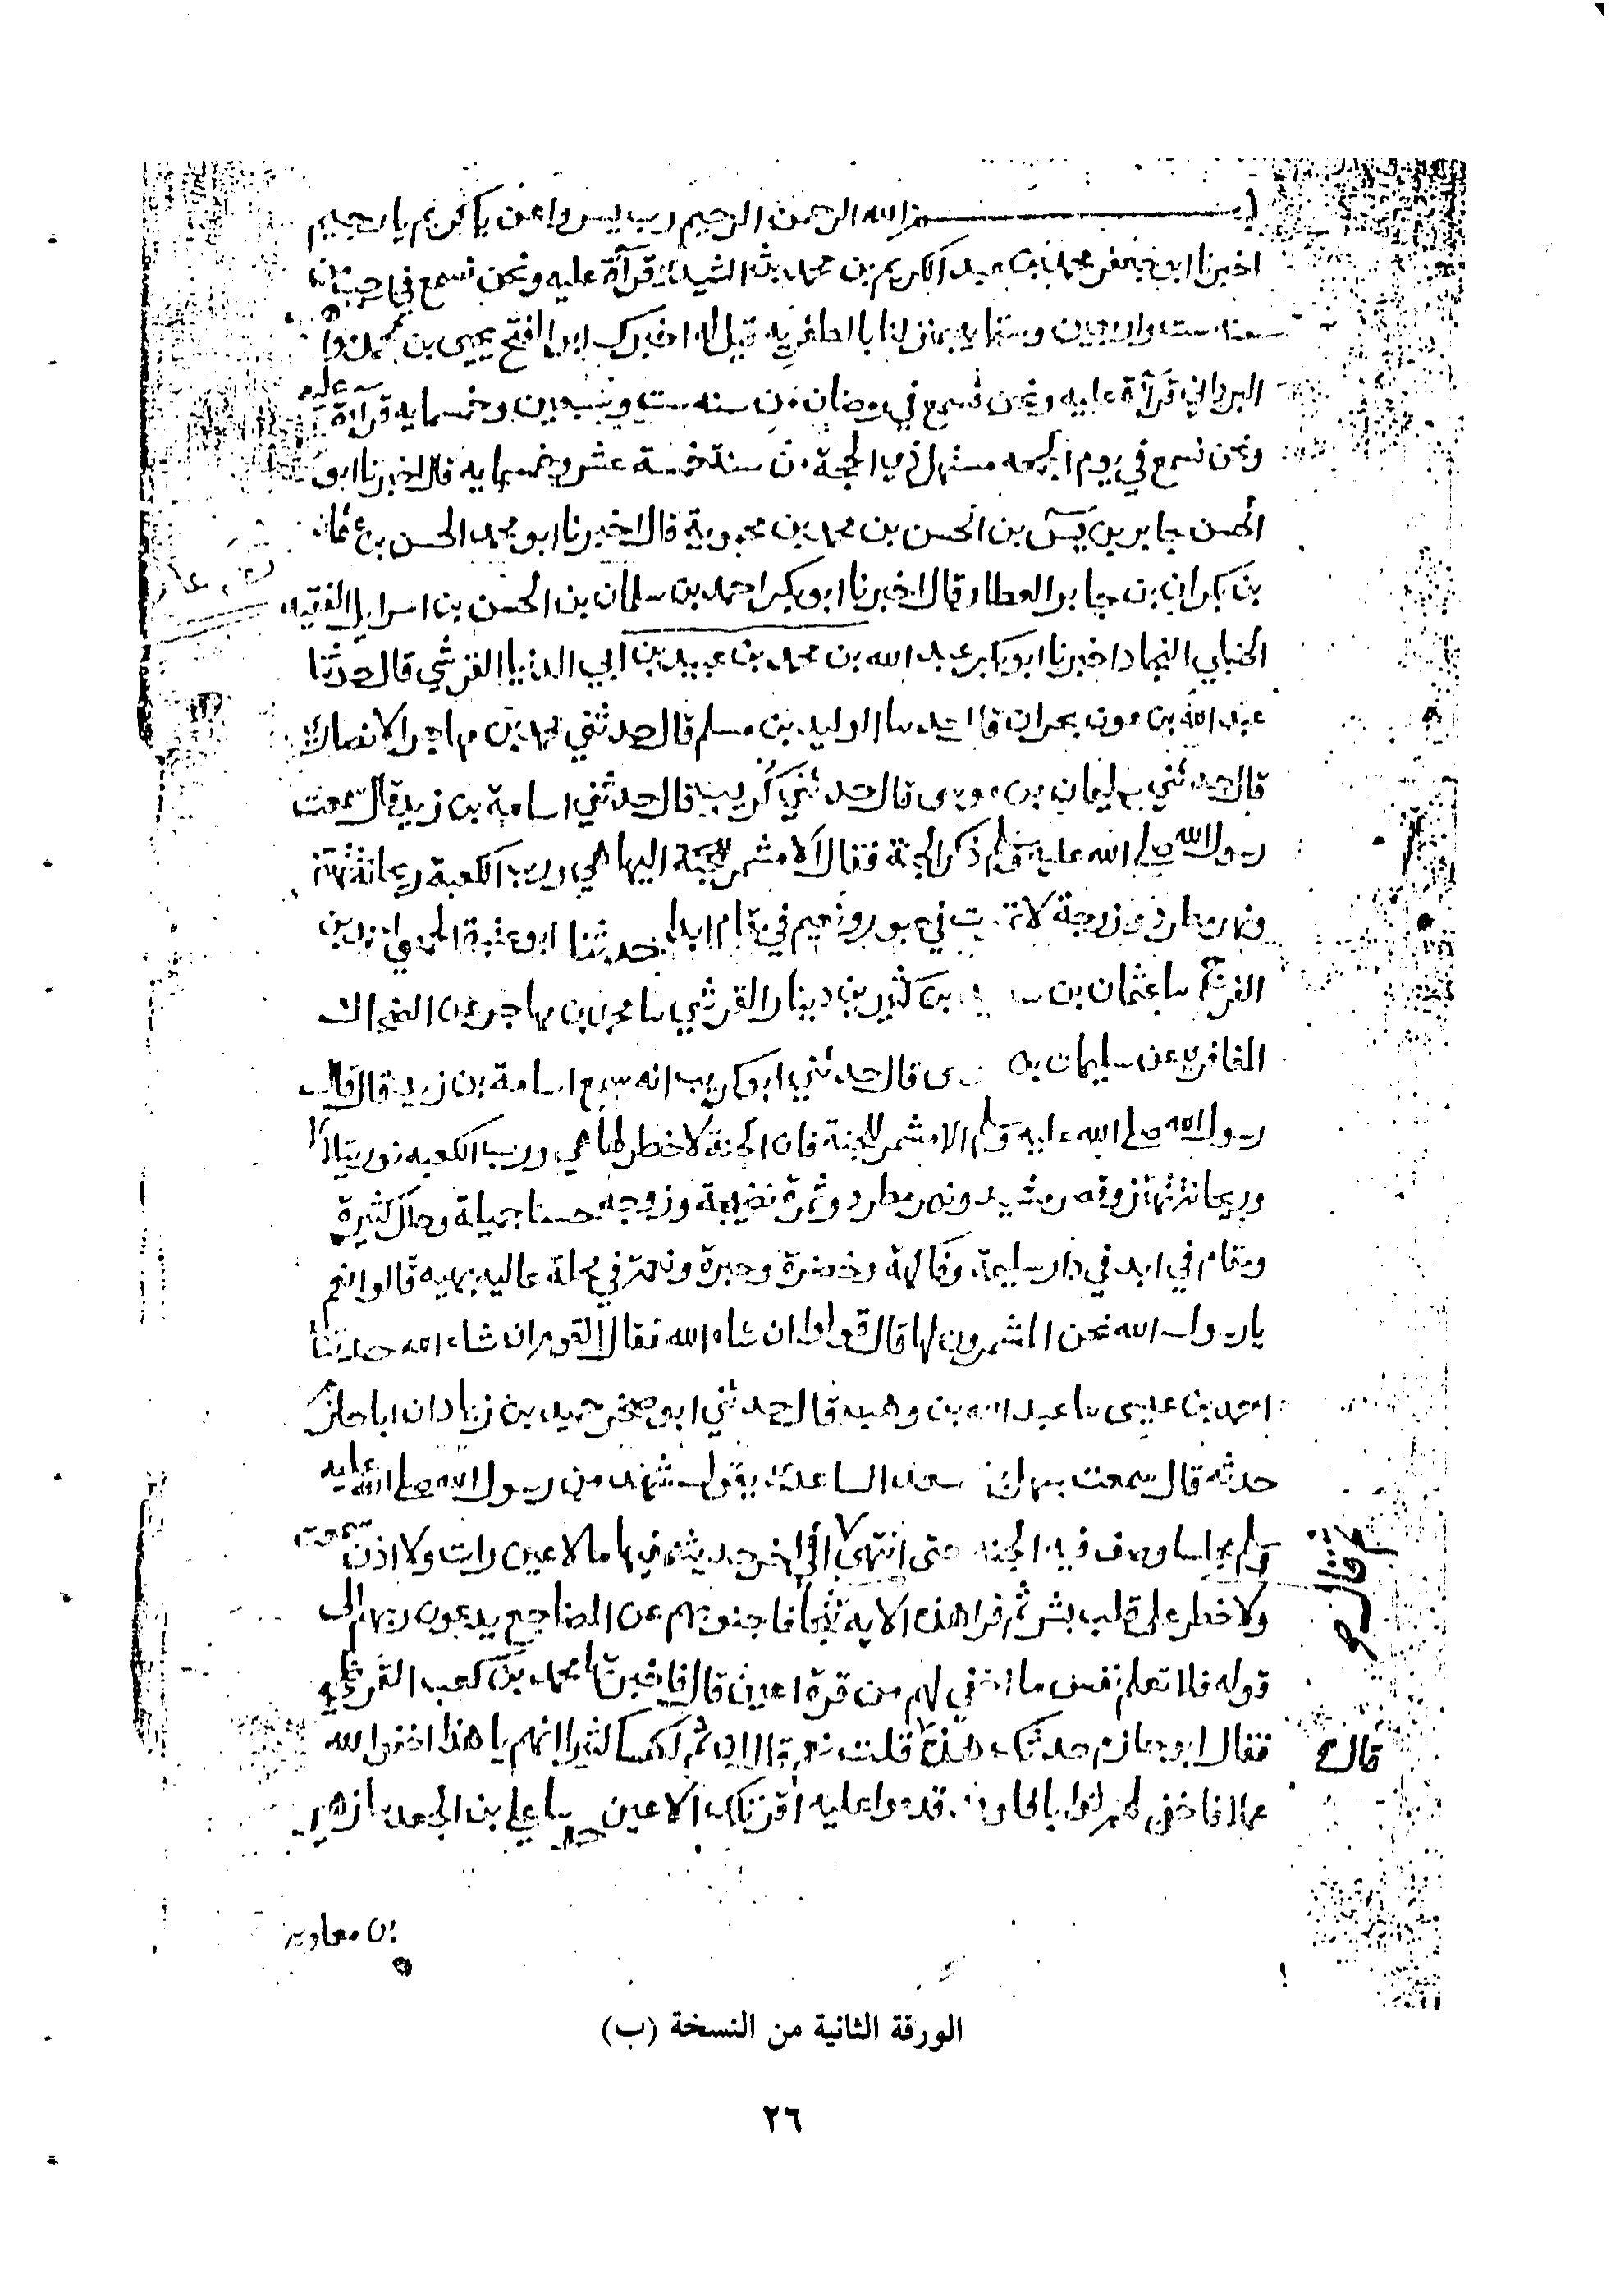 بسم الله الرحمن الرحيم رب يسر واعن يا كريم يا رحيم
اخبرنا ابو جعفر محمد بن عبد الكريم بن محمد بن السيدي قرآة عليه ونحن نسمع في
سنة ست واربعين وستمايه بمنزلنا بالظفريه قيل له اخبرك ابو الفتح يحيى بن محمد
البرداني قرآة عليه ونحن نسمع في رمضان من سنه ست وسبعين وخمسمايه قرآءة عليه
ونحن نسمع في يوم الجمعه مستهل ذي الحجة من سنة خمسة عشر وخمسمايه قال اخبرنا ابو
الحسن جابر بن يس بن الحسن بن محمد بن محموية قال اخبرنا ابو محمد الحسن بن عثمان
بن بكران بن جابر العطار قال اخبرنا ابو بكر احمد بن سلمان بن الحسن بن اسرايل الفقيه
الحنبلي النجاد اخبرنا ابو بكر عبد الله بن محمد بن عبيد بن ابي الدنيا القرشي قال حدثنا
عبد الله بن عون قال حدثنا الوليد بن مسلم قال حدثني محمد بن مهاجر الانصاري
قال حدثني سليمان بن موسى قال حدثني كريب قال حدثني اسامة بن زيد قال سمعت
رسول الله صلى الله عليه وسلم ذكر الجنة فقال الا مشمر للجنة اليها هي ورب الكعبة ريحانة تهتز
ونهر مطرد وزوجة لا تموت في حبور ونعيم في مقام ابدا حدثنا ابو عتبة الحمصي احمد بن
الفرج سا عثمان بن سعيد بن كثير بن دينار القرشي سا محمد بن مهاجر عن الضحاك
المعافري عن سليمان بن موسى قال حدثني ابو كريب انه سمع اسامة بن زيد قال قال
رسول الله صلى الله عليه وسلم الا مشمر للجنة فان الجنة لا خطر لها هي ورب الكعبه نور يتلالا
وريحانة تهتز وقصر مشيد ونهر مطرد وثمرة نضيجة وزوجه حسنا جميلة وحلل كثيرة
ومقام في ابد في دار سليمة وفاكهة وخضرة وحبرة ونعمة في محلة عاليه بهيه قالوا نعم
يا رسول الله نحن المشمرون لها قال قولوا ان شاء الله فقال القوم ان شاء الله حدثنا
احمد بن عيسى سا عبد الله بن وهب قال حدثني ابو صخر حميد بن زياد ان ابا حازم
حدثه قال سمعت سهل بن سعد الساعدي يقول شهدت من رسول الله صلى الله عليه
وسلم مجلسا وصف فيه الجنه حتى انتهى الى اخر حديثه ثم قال فيها ما لا عين رات ولا اذن سمعت
ولا خطر على قلب بشر ثم قرا هذه الايه تتجافا جنوبهم عن المضاجع يدعون ربهم الى
قوله فلا تعلم نفس ما اخفي لهم من قرة اعين قال فاخبرتها محمد بن كعب القرظي
فقال ابو حازم حدثك هذا قلت نعم قال ان ثم لكيسا كثيرا انهم يا هذا اخفوا لله
عملا فاخفى لهم ثوابا فلو قد قدموا عليه اقر تلك الاعين حدثنا علي بن الجعد سا زهير
ثم قال
قال
بن معاويه
الورقة الثانية من النسخة (ب)
٢٦